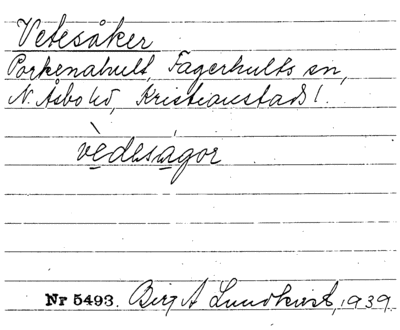 Vetesåker
Porkenahult, Fagerhults sn,
N. Åsbo hd, Kristianstads l.
vèdesågor
Nr 5493. Birg A Lundkvist, 1939